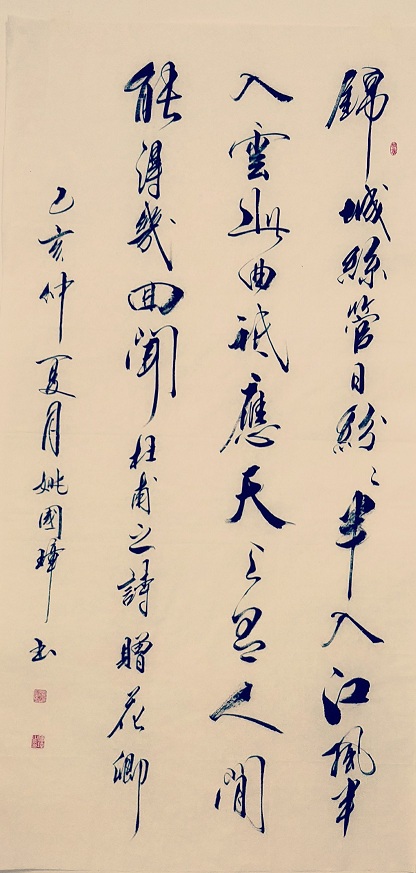 錦城絲管日紛〻半入江風半
入雲此曲祇應天上有人間
能得幾回聞杜甫之詩贈花卿
己亥仲夏月姚國書